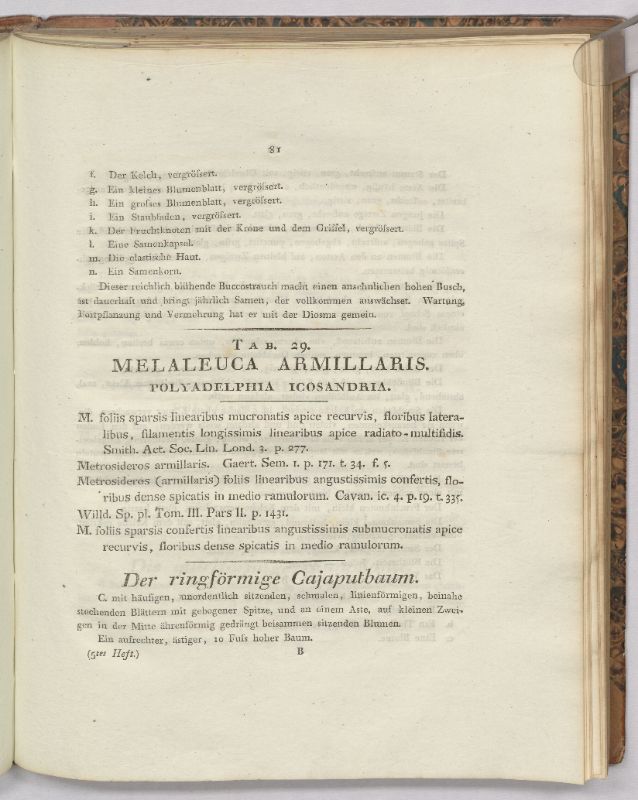 81
f. Der Kelch, vergröſsert.
g. Ein kleines Blumenblatt, vergröſsert.
h. Ein groſses Blumenblatt, vergröſsert.
i. Ein Staubfaden, vergröſsert.
k. Der Fruchtknoten mit der Krone und dem Griffel, vergröſsert.
l. Eine Samenkapsel.
m. Die elastische Haut.
n. Ein Samenkorn.
Dieser reichlich blühende Buccostrauch macht einen ansehnlichen hohen Busch,
ist dauerhaft und bringt jährlich Samen, der vollkommen auswächset. Wartung,
Fortpflanzung und Vermehrung hat er mit der Diosma gemein.
TAB. 29.
MELALEUCA ARMILLARIS.
POLYADELPHIA ICOSANDRIA.
M. foliis sparsis linearibus mucronatis apice recurvis, floribus latera-
libus, filamentis longissimis linearibus apice radiato-multifidis.
Smith. Act. Soc. Lin. Lond. 3. p. 277.
Metrosideros armillaris. Gaert. Sem. 1. p. 171. t. 34. f. 5.
Metrosideros (armillaris) foliis linearibus angustissimis confertis, flo-
ribus dense spicatis in medio ramulorum. Cavan. ic. 4. p. 19. t. 335.
Willd. Sp. pl. Tom. III. Pars II. p. 1431.
M. foliis sparsis confertis linearibus angustissimis submucronatis apice
recurvis, floribus dense spicatis in medio ramulorum.
Der ringförmige Cajaputbaum.
C. mit häufigen, unordentlich sitzenden, schmalen, linienförmigen, beinahe
stechenden Blättern mit gebogener Spitze, und an einem Aste, auf kleinen Zwei-
gen in der Mitte ährenförmig gedrängt beisammen sitzenden Blumen.
Ein aufrechter, ästiger, 10 Fuſs hoher Baum.
(5tes Heft.) B